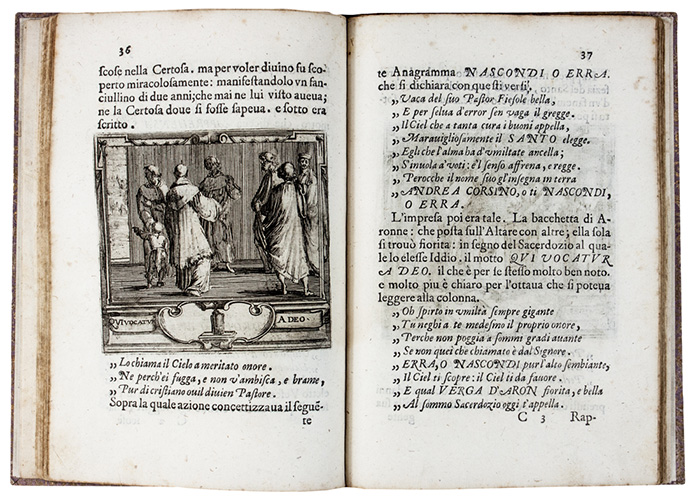 36
scose nella Certosa. ma per voler diuino fu sco-
perto miracolosamente: manifestandolo vn fan-
ciullino di due anni; che mai ne lui visto aueua;
ne la Certosa doue si fosse sapeua. e sotto era
scritto.
QVI VOCATVR A DEO.
„ Lo chiama il Cielo a meritato onore.
„ Ne perch'ei fugga, e non v'ambisca, e brame,
„ Pur di cristiano ouil diuien Pastore.
Sopra la quale azione concettizzaua il seguẽ-
te
37
te Anagramma NASCONDI O ERRA.
che si dichiara con questi versi,
„ Vaca del suo Pastor Fiesole bella,
„ E per selua d'error sen vaga il gregge.
„ Il Ciel che a tanta cura i buoni appella,
„ Marauigliosamente il SANTO elegge.
„ Egli che l'alma ha d'vmiltate ancella;
„ S'inuola a' voti; e'l senso affrena, e regge.
„ Perocche il nome suo gl'insegna in terra
„ ANDREA CORSINO, o ti NASCONDI,
O ERRA.
L'impresa poi era tale. La bacchetta di A-
ronne: che posta sull'Altare con altre; ella sola
si trouò fiorita: in segno del Sacerdozio al qua-
le lo elesse Iddio. il motto QVI VOCATVR
A DEO. il che è per se stesso molto ben noto.
e molto piu è chiaro per l'ottaua che si poteua
leggere alla colonna.
„ Oh spirto in vmiltà sempre gigante
„ Tu neghi a te medesmo il proprio onore,
„ Perche non poggia a sommi gradi auante
„ Se non quei che chiamato è dal Signore.
„ ERRA, O NASCONDI pur l'alto sembiante,
„ Il Ciel ti scopre: il Ciel ti dà fauore.
„ E qual VERGA D'ARON fiorita, e bella
„ Al sommo Sacerdozio oggi t'appella.
C 3 Rap-